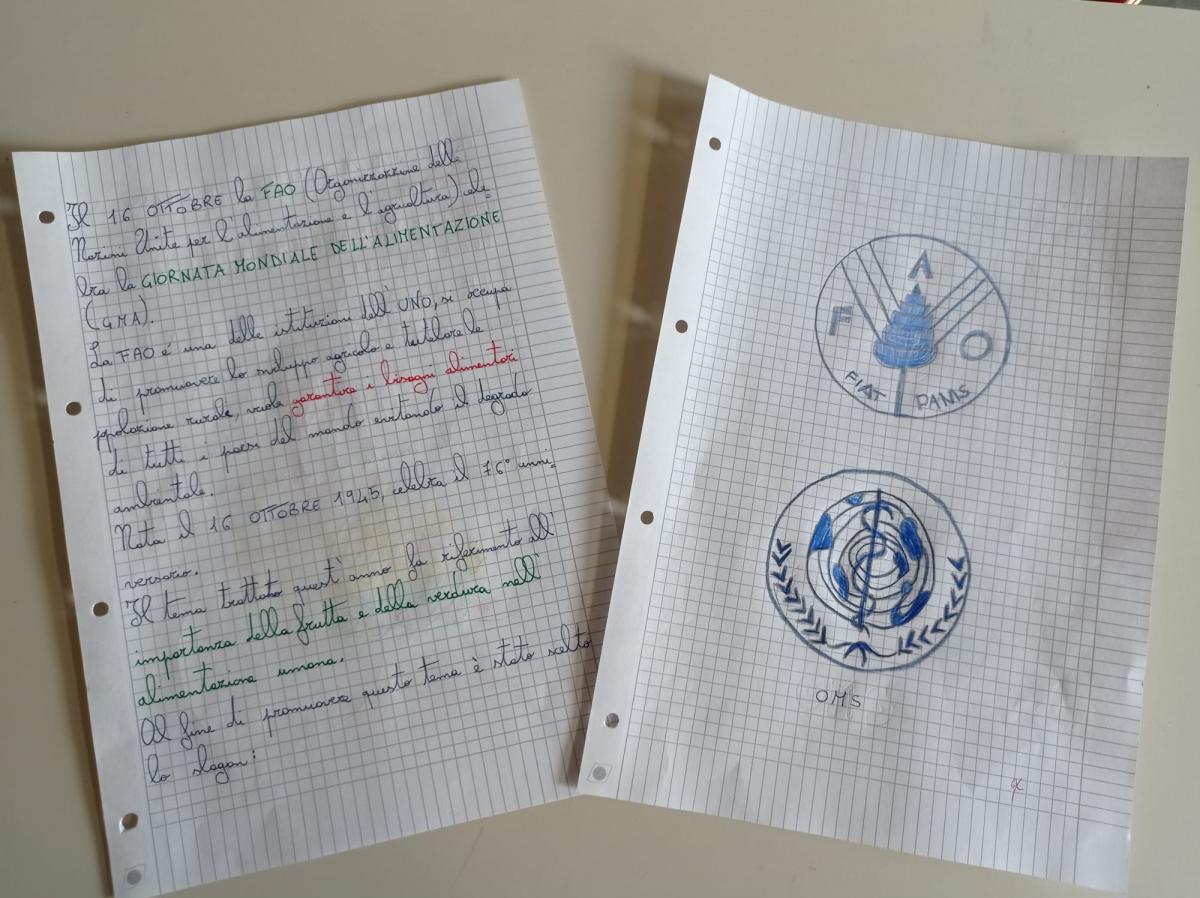 Il 16 OTTOBRE la FAO (Organizzazione delle
Nazioni Unite per l'alimentazione e l'agricoltura) cele-
bra la GIORNATA MONDIALE DELL'ALIMENTAZIONE
(GMA).
La FAO é una delle istituzioni dell'UNO, si occupa
di promuovere lo sviluppo agricolo e tutelare le
popolazione rurale, vuole garantire i bisogni alimentari
di tutti i paesi del mondo evitando il degrado
ambientale.
Nata il 16 OTTOBRE 1945, celebra il 76° anni-
versario.
Il tema trattato quest'anno fa riferimento all'
importanza della frutta e della verdura nell'
alimentazione umana.
Al fine di promuovere questo tema è stato scelto
lo slogan:
F A O
FIAT PANIS
OMS